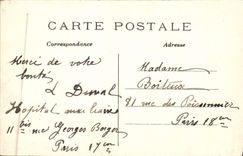 CARTE POSTALE
Correspondance
Adresse
Merci de votre
bonté
L Duval
Hopital auxiliaire
11 bis rue Georges Berger
Paris 17em
Madame
Boiteux
81 rue des Poissonniers
Paris 18em